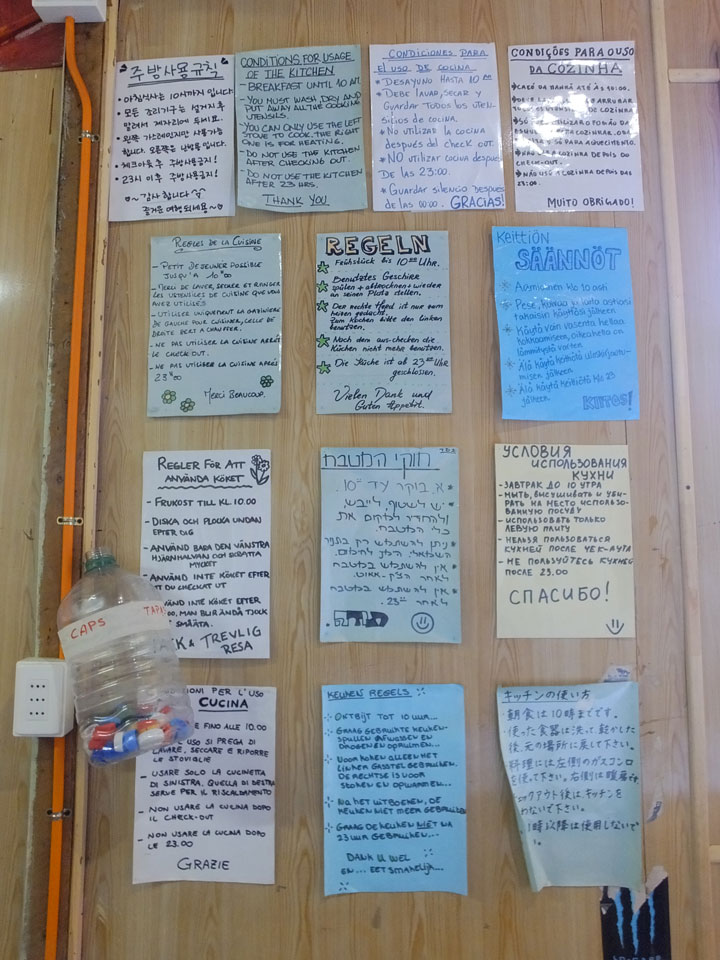 주방사용규칙
• 아침식사는 10시까지 입니다
• 모든 조리기구는 설거지 후
말려서 제자리에 두세요.
• 왼쪽 가스레인지만 사용가능
합니다. 오른쪽은 난방용 입니다.
• 체크아웃 후 주방사용금지!
• 23시 이후 주방사용금지!
~ 감사합니다
즐거운 여행되세요 ~
CONDITIONS FOR USAGE
OF THE KITCHEN
- BREAKFAST UNTIL 10 AM.
- YOU MUST WASH, DRY AND
PUT AWAY ALL THE COOKING
UTENSILS.
- YOU CAN ONLY USE THE LEFT
STOVE TO COOK, THE RIGHT
ONE IS FOR HEATING.
- DO NOT USE THE KITCHEN
AFTER CHECKING OUT.
- DO NOT USE THE KITCHEN
AFTER 23 HRS.
THANK YOU
CONDICIONES PARA
El USO DE COCINA
* DESAYUNO HASTA 10:00
* Debe lavar, secar y
Guardar todos los uten-
silios de cocina.
* No utilizas la cocina
despues del check out.
* NO utilizar cocina despues
De las 23:00.
* Guardar silencio despues
de las 00:00. GRACIAS!
CONDIÇÕES PARA O USO
DA COZINHA
CAFÉ DA MANHÃ ATÉ ÀS 10:00.
UTILIZAR O FOGÃO DA
COZINHAR. O DA
É SÓ PARA AQUECIMENTO.
A COZINHA DEPOIS DO
CHECK-OUT.
NÃO USE A COZINHA DEPOIS DAS
23:00.
MUITO OBRIGADO!
REGLES DE LA CUISINE
- PETIT DEJEUNER POSSIBLE
JUSQU'A 10H00
- MERCI DE LAVER, SECHER ET RANGER
LES USTENSILES DE CUISINE QUE VOUS
AVEZ UTILISÉS
- UTILISER UNIQUEMENT LA GAZINIERE
DE GAUCHE POUR CUISINER, CELLE DE
DROITE SERT A CHAUFFER.
- NE PAS UTILISER LA CUISINE APRÈS
LE CHECK OUT.
- NE PAS UTILISER LA CUISINE APRÈS
23H00
MERCI BEAUCOUP,
REGELN
Frühstück bis 10:00 Uhr.
Benutztes Geschirr
spülen + abtrocknen + wieder
an seinen Platz stellen.
Der rechte Herd ist nur zum
heizen gedacht.
Zum Kochen bitte den linken
benutzen.
Nach dem aus-checken die
Küchen nicht mehr benutzen.
Die Küche ist ab 23:00 Uhr
geschlossen.
Vielen Dank und
Guten Appetit.
KEITTIÖN
SÄÄNNÖT
Aamiainen klo 10 asti
Pese, kuivaa ja laita astiasi
takaisin käyttösi jälkeen
Käytä vain vasenta hellaa
kokkaamiseen, oikea hella on
lämmitystä varten
Älä käytä keittiötä uloskirjautu-
misen jälkeen
Älä käytä keittiötä klo 23
jälkeen
KIITOS!
REGLER FÖR ATT
ANVÄNDA KÖKET
- FRUKOST TILL KL.10.00
- DISKA OCH PLOCKA UNDAN
EFTER DIG
- ANVÄND BARA DEN VÄNSTRA
HJÄRNHALVAN OCH SKRATTA
MYCKET
- ANVÄND INTE KÖKET EFTER
ATT DU CHECKAT UT
ANVÄND INTE KÖKET EFTER
MAN BLIR ÄNDÅ TJOCK
SMÄÄTA.
TACK & TREVLIG
RESA
חוקי המטבח
א. בוקר עד 10:00
יש לשטוף, לייבש,
ולהחזיר למקום את
כלי המטבח.
ניתן להשתמש רק בתנור
השמאלי. הימני לחימום.
אין להשתמש במטבח
לאחר הצ'ק-אאוט.
אין להשתמש במטבח
לאחר 23:00
תודה
УСЛОВИЯ
ИСПОЛЬЗОВАНИЯ
КУХНИ
- ЗАВТРАК ДО 10 УТРА
- МЫТЬ, ВЫСУШИВАТЬ И УБИ-
РАТЬ НА МЕСТО ИСПОЛЬЗО-
ВАННУЮ ПОСУДУ
- ИСПОЛЬЗОВАТЬ ТОЛЬКО
ЛЕВУЮ ПЛИТУ
- НЕЛЬЗЯ ПОЛЬЗОВАТЬСЯ
КУХНЕЙ ПОСЛЕ ЧЕК-АУТА
- НЕ ПОЛЬЗУЙТЕСЬ КУХНЕЙ
ПОСЛЕ 23.00
СПАСИБО!
CAPS TAPA
PER L'USO
CUCINA
FINO ALLE 10.00
USO SI PREGA DI
LAVARE, SECCARE E RIPORRE
LE STOVIGLIE
- USARE SOLO LA CUCINETTA
DI SINISTRA. QUELLA DI DESTRA
SERVE PER IL RISCALDAMENTO
- NON USARE LA CUCINA DOPO
IL CHECK-OUT
- NON USARE LA CUCINA DOPO
LE 23.00
GRAZIE
KEUKEN REGELS
ONTBIJT TOT 10 UUR...
GRAAG GEBRUIKTE KEUKEN-
SPULLEN AFWASSEN EN
DROGEN EN OPRUIMEN...
VOOR KOKEN ALLEEN HET
LINKER GASSTEL GEBRUIKEN,
DE RECHTSE IS VOOR
STOKEN EN OPWARMEN...
NA HET UITBOEKEN, DE
KEUKEN NIET MEER GEBRUIKEN
GRAAG DE KEUKEN NIET NA
23 UUR GEBRUIKEN...
DANK U WEL
EN... EET SMAKELIJK...
キッチンの使い方
・朝食は10時までです。
・使った食器は洗い、乾かした
後、元の場所に戻して下さい。
料理には左側のガスコンロ
を使って下さい。右側は暖房
ックアウト後はキッチンを
わないで下さい。
時以降は使用しないで